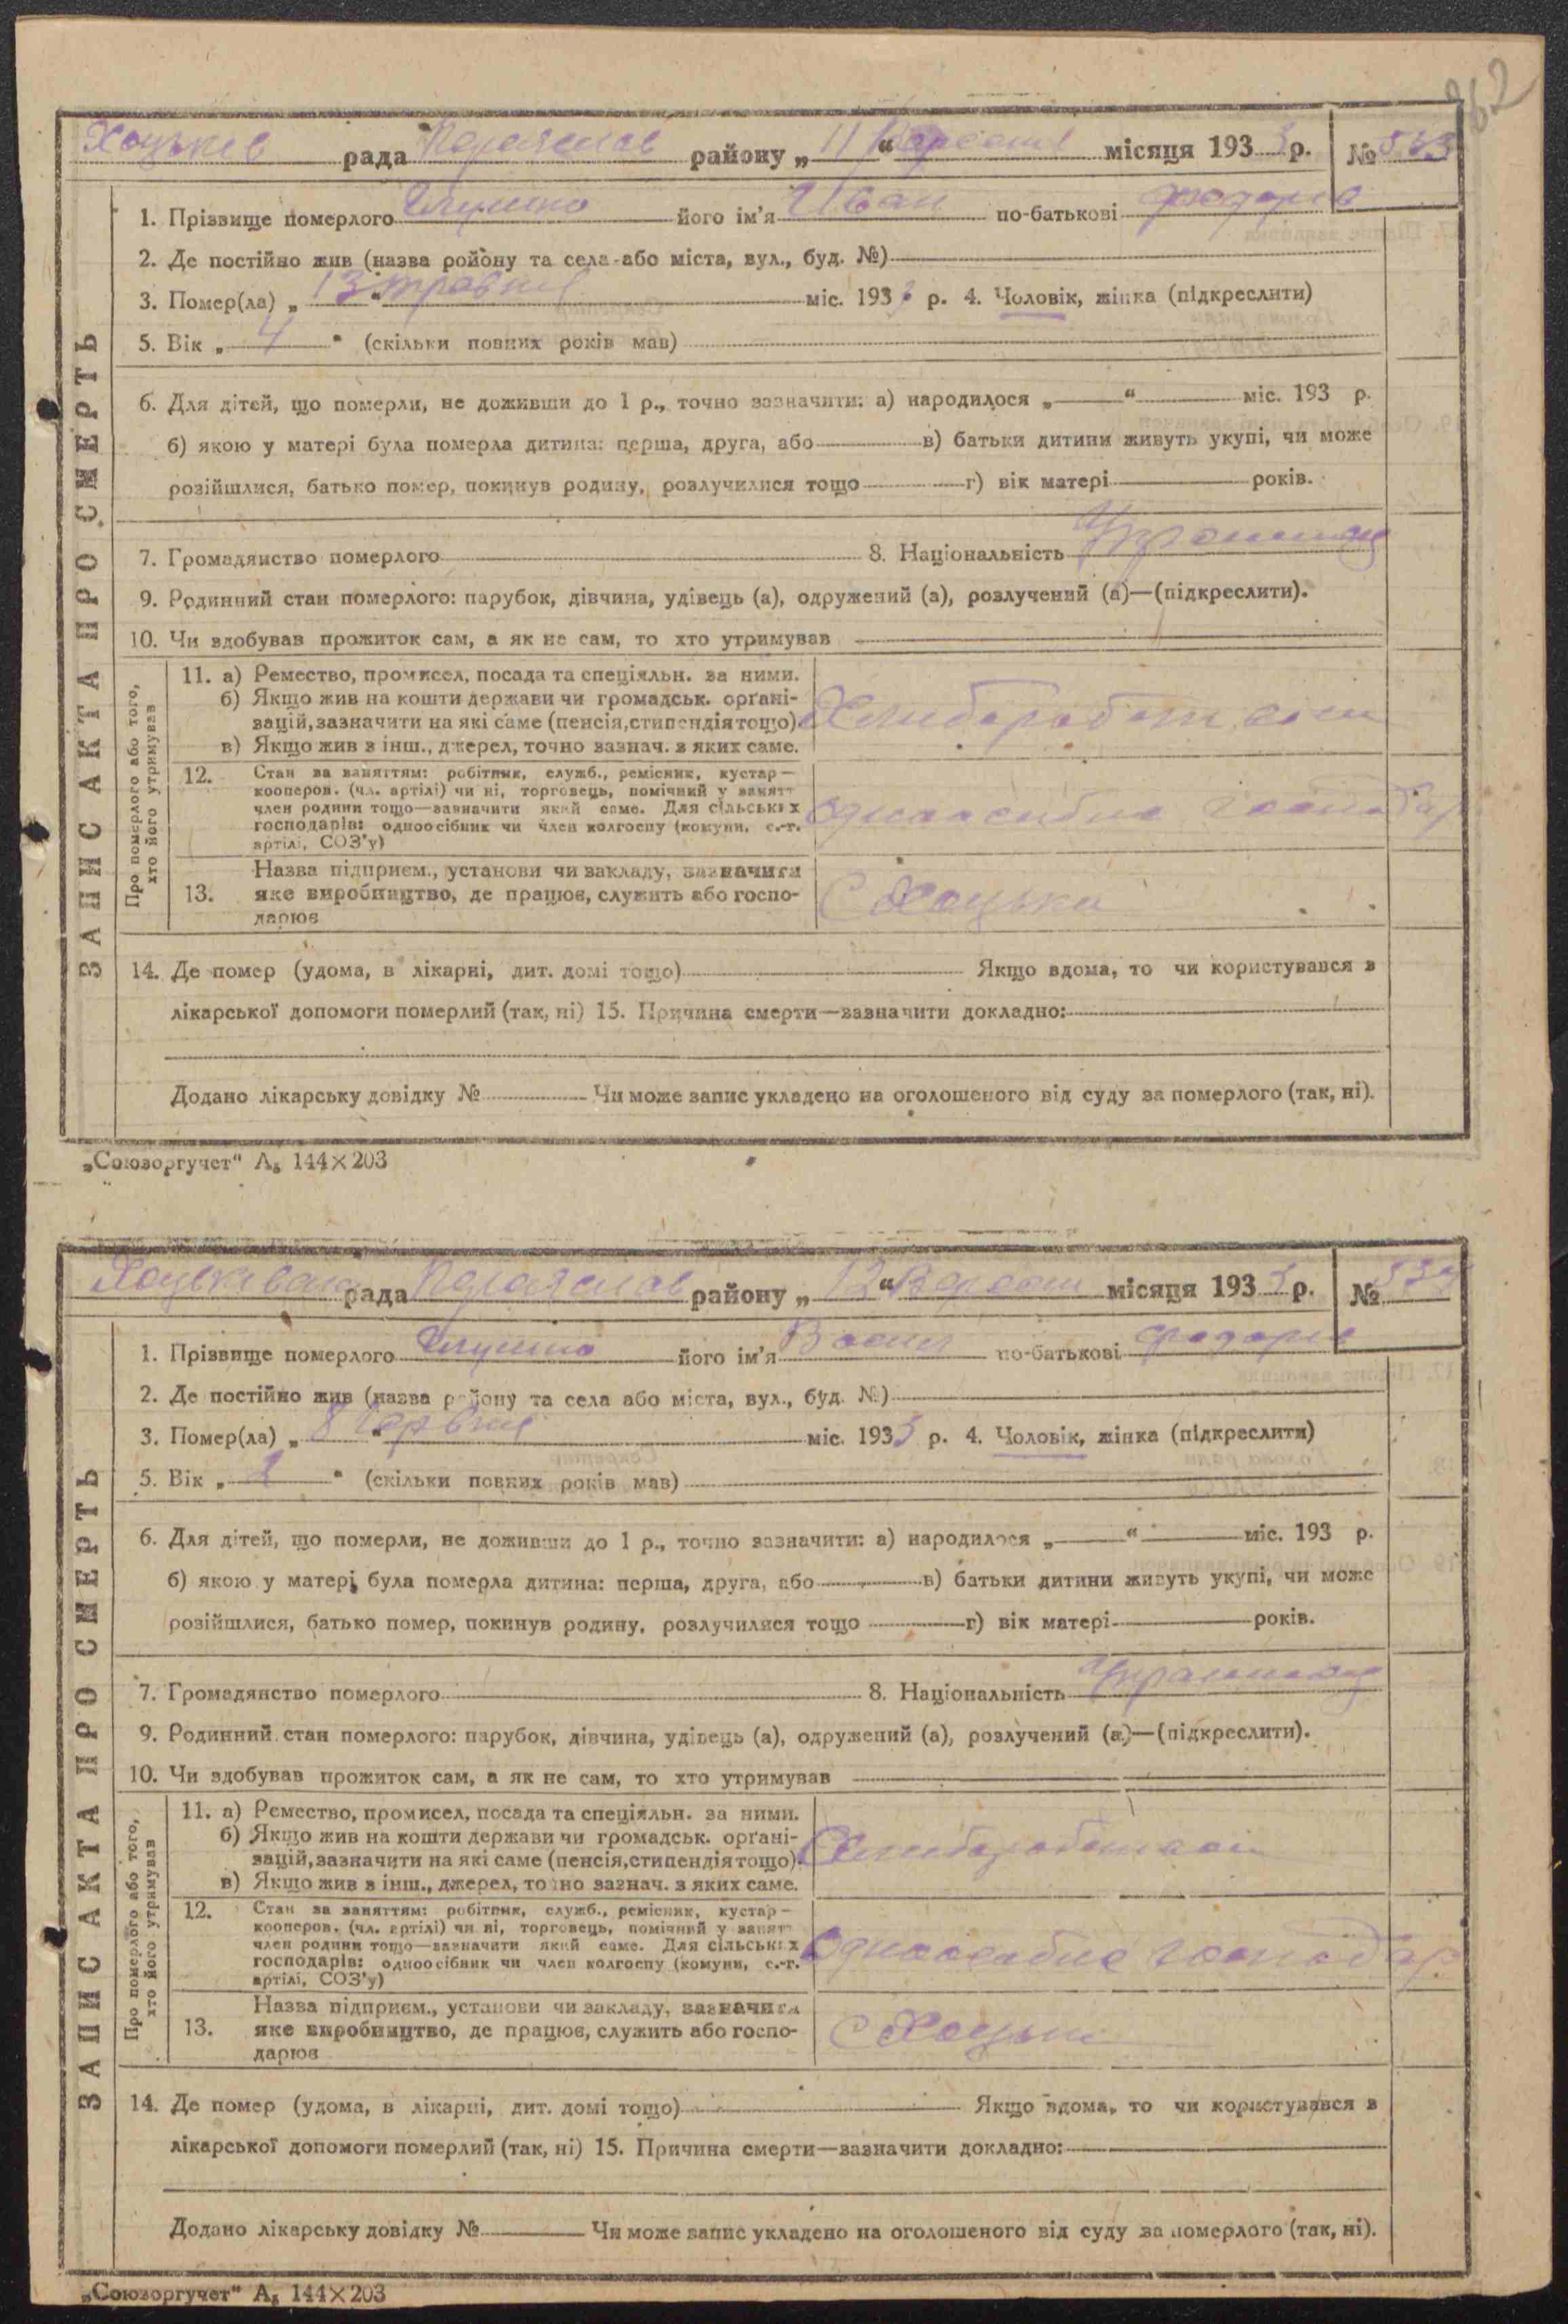 262
Хоцьків рада Переяслав району „ 11 “ Вересня місяця 1933 р. № 533
1. Прізвище померлого його ім’я Иван по-батькові Федорів
2. Де постійно жив (назва ройону та села або міста, вул., буд. №)
3. Помер(ла) „ 13 “ травня міс. 1933 р. 4. Чоловік, жінка (підкреслити)
5. Вік „ 4 “ (скільки повних років мав)
6. Для дітей, що померли, не доживши до 1 р., точно зазначити: а) народилося „ “ міс. 193 р.
б) якою у матері була померла дитина: перша, друга, або в) батьки дитини живуть укупі, чи може
розійшлися, батько помер, покинув родину, розлучилися тощо г) вік матері років.
7. Громадянство померлого 8. Національність
9. Родинний стан померлого: парубок, дівчина, удівець (а), одружений (а), розлучений (а)—(підкреслити).
10. Чи здобував прожиток сам, а як не сам, то хто утримував
ЗАПИС АКТА ПРО СМЕРТЬ
Про померлого або того, хто його утримував
11. а) Ремество, промисел, посада та спеціяльн. за ними.
б) Якщо жив на кошти держави чи громадськ. орґані-
зацій, зазначити на які саме (пенсія, стипендія тощо).
в) Якщо жив з інш., джерел, точно зазнач. з яких саме.
12. Стан за заняттям: робітник, служб., ремісник, кустар—
кооперов. (чл. артілі) чи ні, торговець, помічний у занятт
член родини тощо—зазначити який саме. Для сільських
господарів: одноосібник чи член колгоспу (комуни, с.-г.
артілі, СОЗ’у)
господар
13. Назва підприєм., установи чи закладу, зазначити
яке виробництво, де працює, служить або госпо-
дарює
С Хоцьки
14. Де помер (удома, в лікарні, дит. домі тощо) Якщо вдома, то чи користувався з
лікарської допомоги померлий (так, ні) 15. Причина смерти—зазначити докладно:
Додано лікарську довідку № Чи може запис укладено на оголошеного від суду за померлого (так, ні).
„Союзоргучет“ А₅ 144×203
рада Переяслав району „ 12 “ місяця 1933 р. № 534
1. Прізвище померлого його ім’я по-батькові Федорів
2. Де постійно жив (назва району та села або міста, вул., буд. №)
3. Помер(ла) „ 8 “ червня міс. 1933 р. 4. Чоловік, жінка (підкреслити)
5. Вік „ “ (скільки повних років мав)
6. Для дітей, що померли, не доживши до 1 р., точно зазначити: а) народилося „ “ міс. 193 р.
б) якою у матері була померла дитина: перша, друга, або в) батьки дитини живуть укупі, чи може
розійшлися, батько помер, покинув родину, розлучилися тощо г) вік матері років.
7. Громадянство померлого 8. Національність
9. Родинний стан померлого: парубок, дівчина, удівець (а), одружений (а), розлучений (а)—(підкреслити).
10. Чи здобував прожиток сам, а як не сам, то хто утримував
ЗАПИС АКТА ПРО СМЕРТЬ
Про померлого або того, хто його утримував
11. а) Ремество, промисел, посада та спеціяльн. за ними.
б) Якщо жив на кошти держави чи громадськ. орґані-
зацій, зазначити на які саме (пенсія, стипендія тощо).
в) Якщо жив з інш., джерел, точно зазнач. з яких саме.
12. Стан за заняттям: робітник, служб., ремісник, кустар—
кооперов. (чл. артілі) чи ні, торговець, помічний у занятт
член родини тощо—зазначити який саме. Для сільських
господарів: одноосібник чи член колгоспу (комуни, с.-г.
артілі, СОЗ’у)
господар
13. Назва підприєм., установи чи закладу, зазначити
яке виробництво, де працює, служить або госпо-
дарює
С Хоцьки
14. Де помер (удома, в лікарні, дит. домі тощо) Якщо вдома, то чи користувався з
лікарської допомоги померлий (так, ні) 15. Причина смерти—зазначити докладно:
Додано лікарську довідку № Чи може запис укладено на оголошеного від суду за померлого (так, ні).
„Союзоргучет“ А₅ 144×203